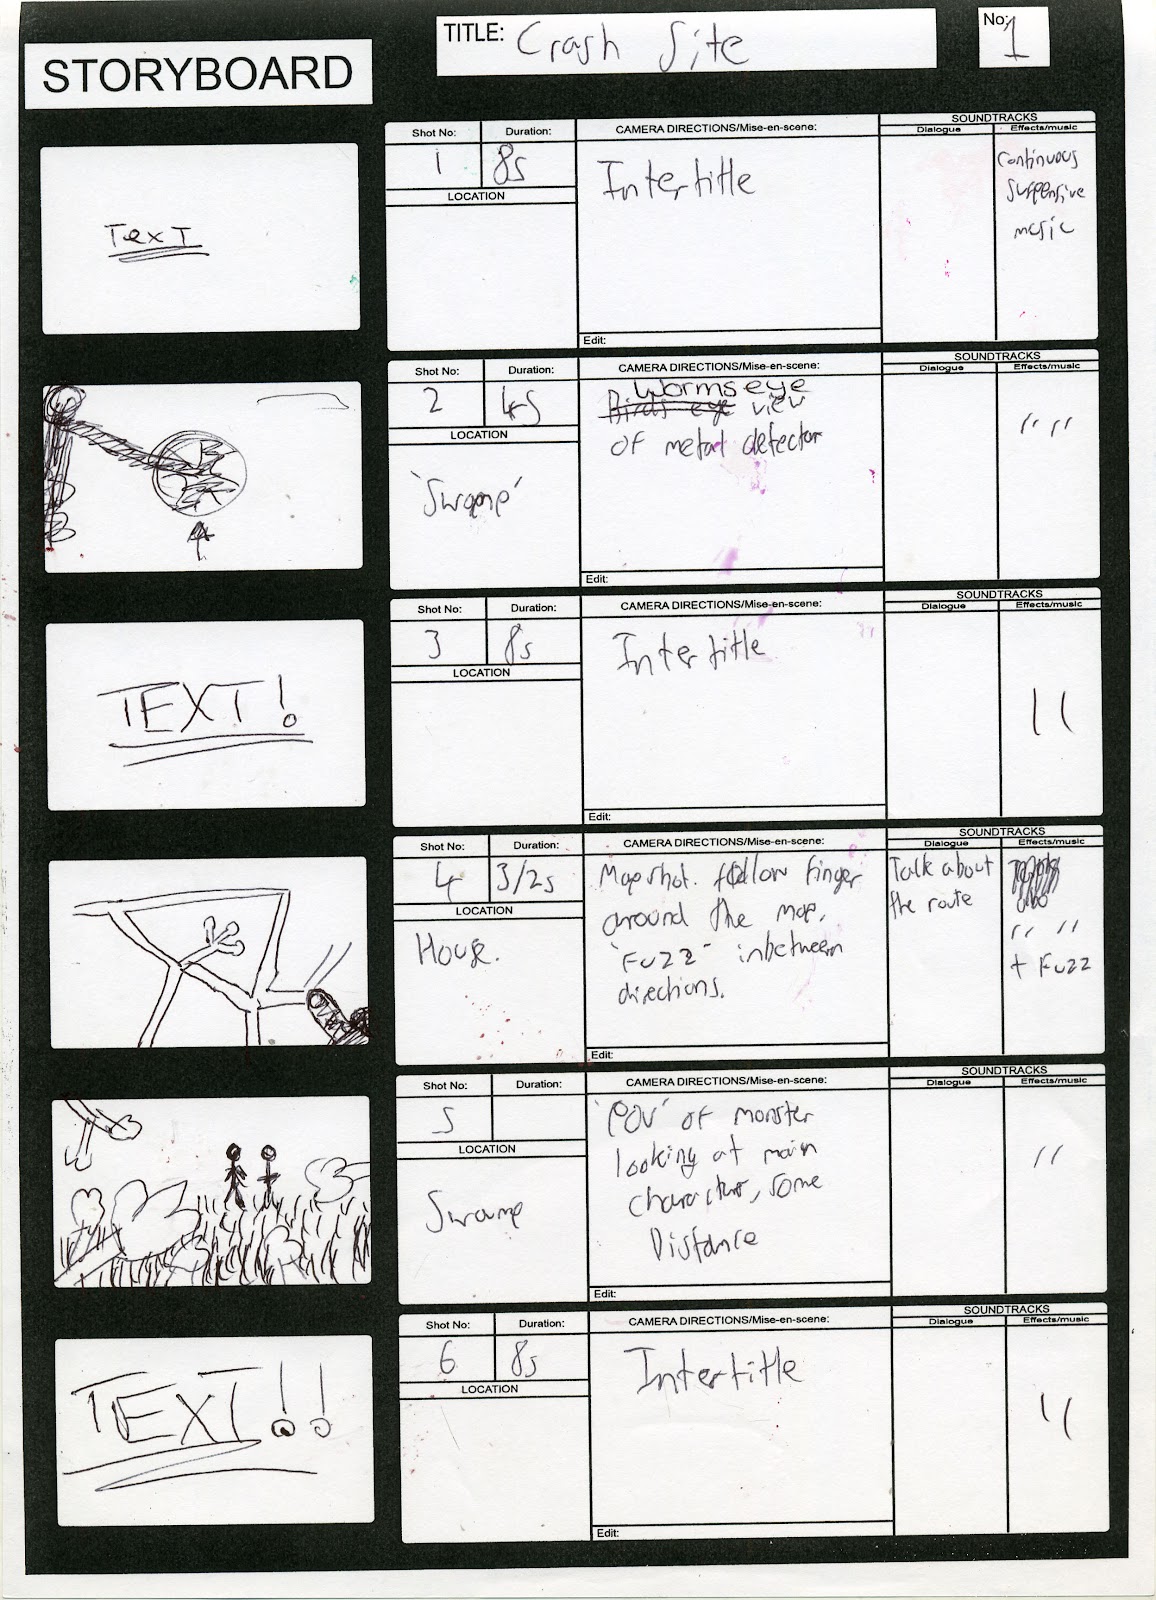 TITLE: Crash Site
No: 1
STORYBOARD
Shot No: Duration: CAMERA DIRECTIONS/Mise-en-scene: SOUNDTRACKS
Dialogue Effects/music
1 8s Intertitle
continuous
suspensive
music
LOCATION
Text
Edit:
Shot No: Duration: CAMERA DIRECTIONS/Mise-en-scene: SOUNDTRACKS
Dialogue Effects/music
2 4s
Worms eye
Birds eye view
of metal detector
" "
LOCATION
'Swamp'
Edit:
Shot No: Duration: CAMERA DIRECTIONS/Mise-en-scene: SOUNDTRACKS
Dialogue Effects/music
3 8s Intertitle
"
LOCATION
TEXT!
Edit:
Shot No: Duration: CAMERA DIRECTIONS/Mise-en-scene: SOUNDTRACKS
Dialogue Effects/music
4 3/2s
Map shot. follow finger
around the map.
"Fuzz" inbetween
directions.
Talk about
the route
" "
+ Fuzz
LOCATION
House.
Edit:
Shot No: Duration: CAMERA DIRECTIONS/Mise-en-scene: SOUNDTRACKS
Dialogue Effects/music
5
'POV' of monster
looking at main
characters, some
Distance
"
LOCATION
Swamp
Edit:
Shot No: Duration: CAMERA DIRECTIONS/Mise-en-scene: SOUNDTRACKS
Dialogue Effects/music
6 8s Intertitle
"
LOCATION
TEXT!!
Edit: